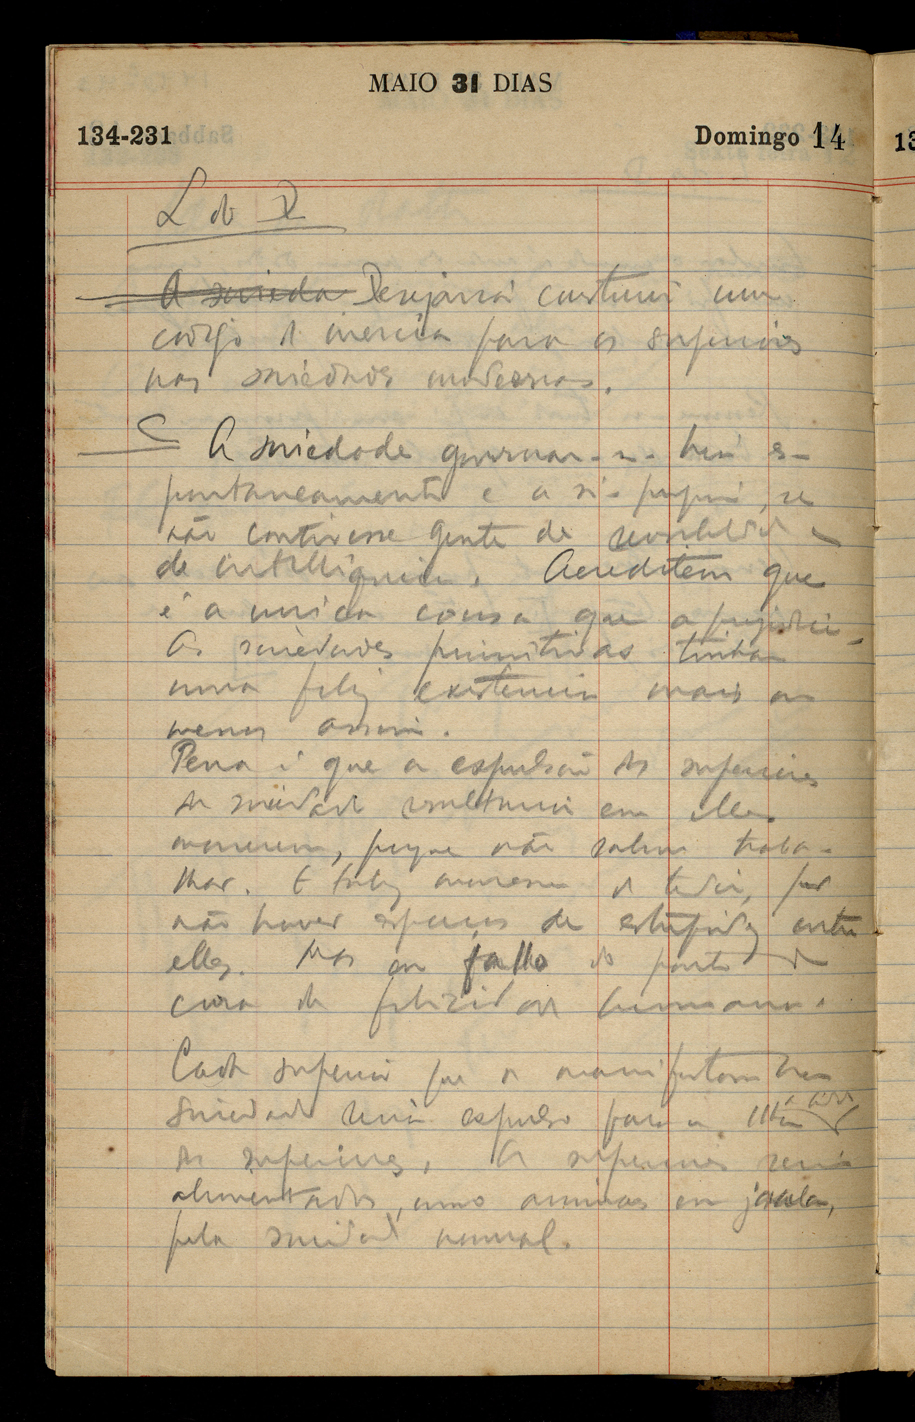 MAIO 31 DIAS
134-231
Domingo 14
L do D
A socieda Desejaria construir um
codigo de inercia para os superiores
nas sociedades modernas.
A sociedade governar-se-hia es-
pontaneamente e a si-propria, se
não contivesse gente de sensibilidade e
de intelligencia. Acreditem que
é a unica cousa que a prejudica.
As sociedades primitivas tinham
uma feliz existencia mais ou
menos assim.
Pena é que a expulsão dos superiores
da sociedade resultaria em elles
morrerem, porque não sabem traba-
lhar. E talvez morressem de tedio, por
não haver espaços de estupidez entre
elles. Mas eu fallo do ponto de
vista da felicidade humana.
Cada superior que se manifestasse na
sociedade seria expulso para a Ilha
dos superiores. Os superiores seriam
alimentados, como animaes em jaula,
pela sociedade normal.